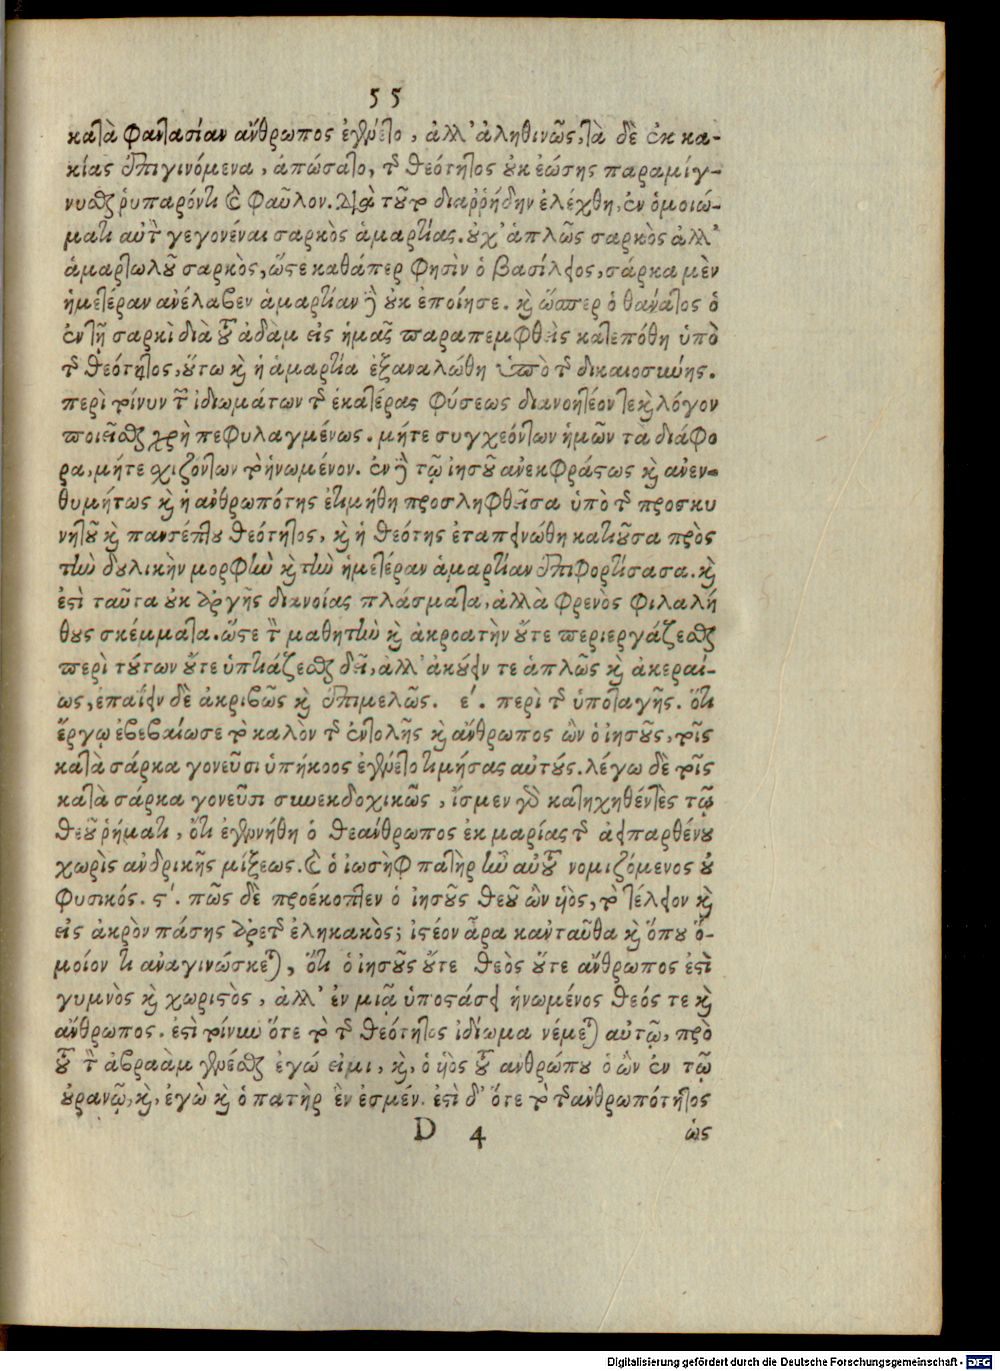 55
κατὰ φαντασίαν ἄνθρωπος ἐγένετο, ἀλλ' ἀληθινῶς, τὰ δὲ ἐκ κα-
κίας ἐπιγινόμενα, ἀπώσατο, τῆς θεότητος οὐκ ἐώσης παραμίγ-
νυσθαι ῥυπαρόν τι καὶ φαῦλον. διὰ τοῦτο διαῤῥήδην ἐλέχθη, ἐν ὁμοιώ-
ματι αὐτὸν γεγονέναι σαρκὸς ἁμαρτίας. οὐχ' ἁπλῶς σαρκὸς ἀλλ'
ἁμαρτωλοῦ σαρκὸς, ὥστε καθάπερ φησὶν ὁ βασίλειος, σάρκα μὲν
ἡμετέραν ἀνέλαβεν ἁμαρτίαν δὲ οὐκ ἐποίησε. καὶ ὥσπερ ὁ θάνατος ὁ
ἐν τῇ σαρκὶ διὰ τοῦ ἀδὰμ εἰς ἡμᾶς παραπεμφθεὶς κατεπόθη ὑπὸ
τῆς θεότητος, οὕτω καὶ ἡ ἁμαρτία ἐξαναλώθη ὑπὸ τῆς δικαιοσύνης.
περὶ τοίνυν τῶν ἰδιωμάτων τῆς ἑκατέρας φύσεως διανοητέον τε καὶ λόγον
ποιεῖσθαι χρὴ πεφυλαγμένως. μήτε συγχεόντων ἡμῶν τὰ διάφο
ρα, μήτε σχιζόντων τὸ ἡνωμένον. ἐν δὲ τῷ ἰησοῦ ἀνεκφράστως καὶ ἀνεν-
θυμήτως καὶ ἡ ἀνθρωπότης ἐτιμήθη προσληφθεῖσα ὑπὸ τῆς προσκυ
νητοῦ καὶ πανσέπτου θεότητος, καὶ ἡ θεότης ἐταπεινώθη κατιοῦσα πρὸς
τὴν δουλικὴν μορφὴν καὶ τὴν ἡμετέραν ἁμαρτίαν ἐπιφορτίσασα. καὶ
ἐστὶ ταῦτα οὐκ ἀργῆς διανοίας πλάσματα, ἀλλὰ φρενὸς φιλαλή
θους σκέμματα. ὥστε τὸν μαθητὴν καὶ ἀκροατὴν οὔτε περιεργάζεσθαι
περὶ τούτων οὔτε ὑπτιάζεσθαι δεῖ, ἀλλ' ἀκούειν τε ἁπλῶς καὶ ἀκεραί-
ως, ἐπαΐειν δὲ ἀκριβῶς καὶ ἐπιμελῶς. ε'. περὶ τῆς ὑποταγῆς. ὅτι
ἔργῳ ἐβεβαίωσε τὸ καλὸν τῆς ἐντολῆς καὶ ἄνθρωπος ὢν ὁ ἰησοῦς, τοῖς
κατὰ σάρκα γονεῦσι ὑπήκοος ἐγένετο τιμήσας αὐτούς. λέγω δὲ τοῖς
κατὰ σάρκα γονεῦσι συνεκδοχικῶς, ἴσμεν γὰρ κατηχηθέντες τῷ
θεοῦ ῥήματι, ὅτι ἐγεννήθη ὁ θεάνθρωπος ἐκ μαρίας τῆς ἀειπαρθένου
χωρὶς ἀνδρικῆς μίξεως. καὶ ὁ ἰωσὴφ πατὴρ ἦν αὐτοῦ νομιζόμενος οὐ
φυσικός. ς'. πῶς δὲ προέκοπτεν ὁ ἰησοῦς θεοῦ ὢν υἱὸς, τὸ τέλειον καὶ
εἰς ἄκρον πάσης ἀρετῆς ἐληκακὸς; ἰστέον ἆρα κἀνταῦθα καὶ ὅπου ὅ-
μοίον τι ἀναγινώσκεται, ὅτι ὁ ἰησοῦς οὔτε θεὸς οὔτε ἄνθρωπος ἐστὶ
γυμνὸς καὶ χωριστὸς, ἀλλ' ἐν μιᾷ ὑποστάσει ἡνωμένος θεός τε καὶ
ἄνθρωπος. ἐστὶ τοίνυν ὅτε τὸ τῆς θεότητος ἰδίωμα νέμεται αὐτῷ, πρὸ
τοῦ τὸν ἀβραὰμ γενέσθαι ἐγώ εἰμι, καὶ, ὁ υἱὸς τοῦ ἀνθρώπου ὁ ὢν ἐν τῷ
οὐρανῷ, καὶ, ἐγὼ καὶ ὁ πατὴρ ἓν ἐσμέν. ἐστὶ δ' ὅτε τὸ τῆς ἀνθρωπότητος
D 4 ὡς
Digitalisierung gefördert durch die Deutsche Forschungsgemeinschaft - DFG